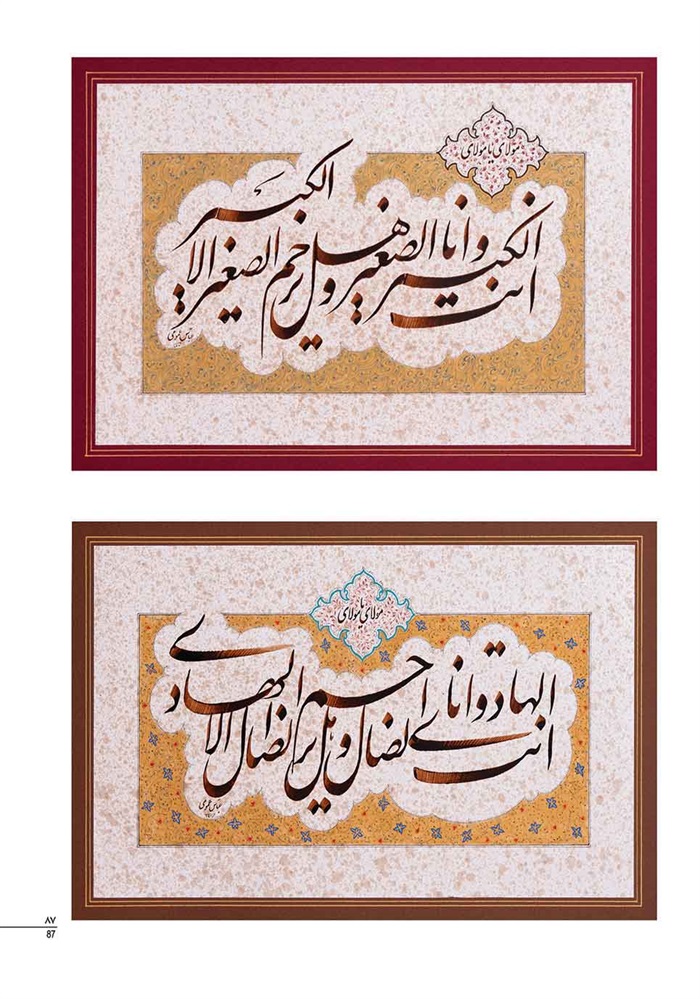 مولای یا مولای
انت الکبیر وانا الصغیر وهل یرحم الصغیر الا الکبیر
مولای یا مولای
انت الهادی وانا الضال وهل یرحم الضال الا الهادی
۸۷
87